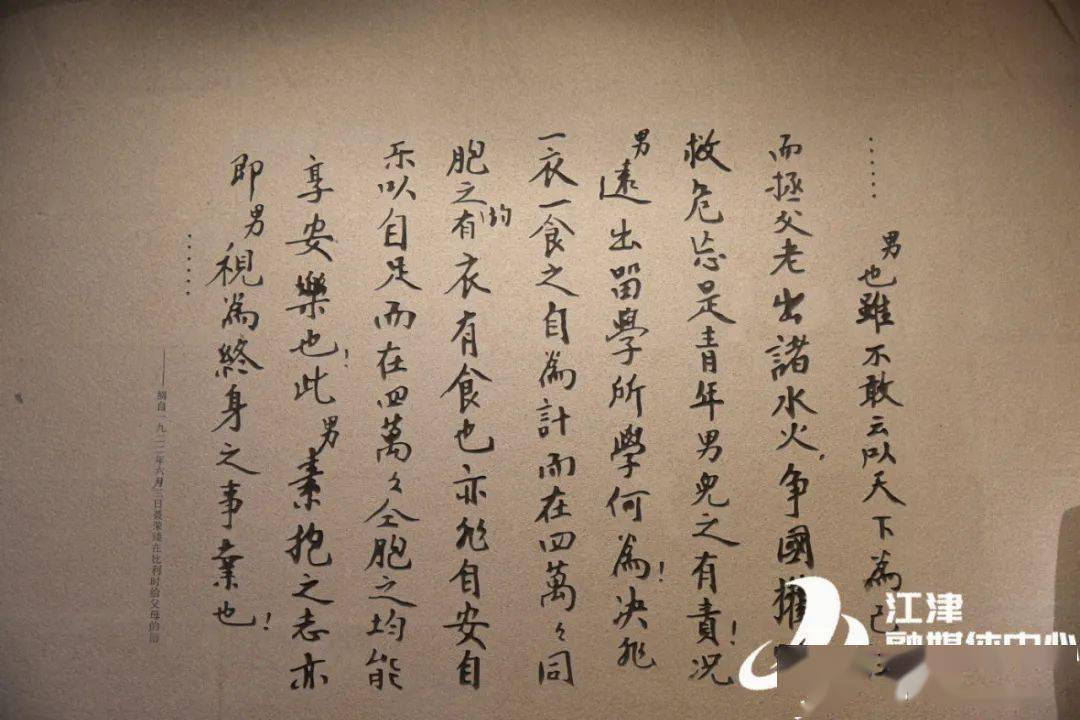 ……男也雖不敢云以天下為己
而拯父老出諸水火,争國權
救危忘是青年男兒之有責!況
男遠出留學所學何為!决非
一衣一食之自為計而在四萬々同
胞之均有衣有食也亦非自安自
乐以自足而在四萬々仝胞之均能
享安樂也!此男素抱之志亦
即男視為終身之事業也!
……
——摘自一九二二年六月三日聂荣臻在比利时给父母的信
江津
融媒体中心